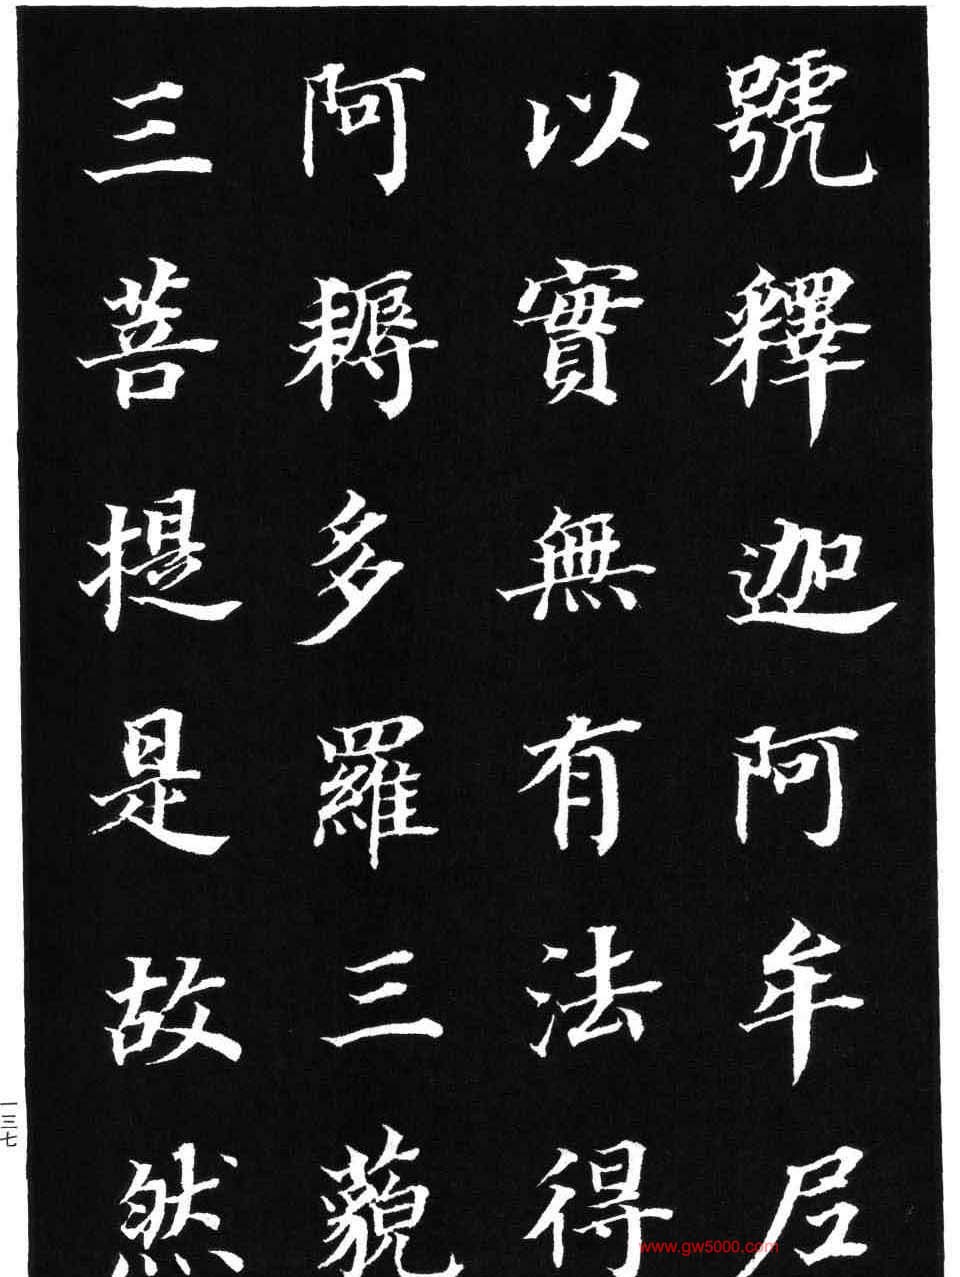 號釋迦阿牟尼
以實無有法得
阿耨多羅三藐
三菩提是故然
一三七
www.gw5000.com